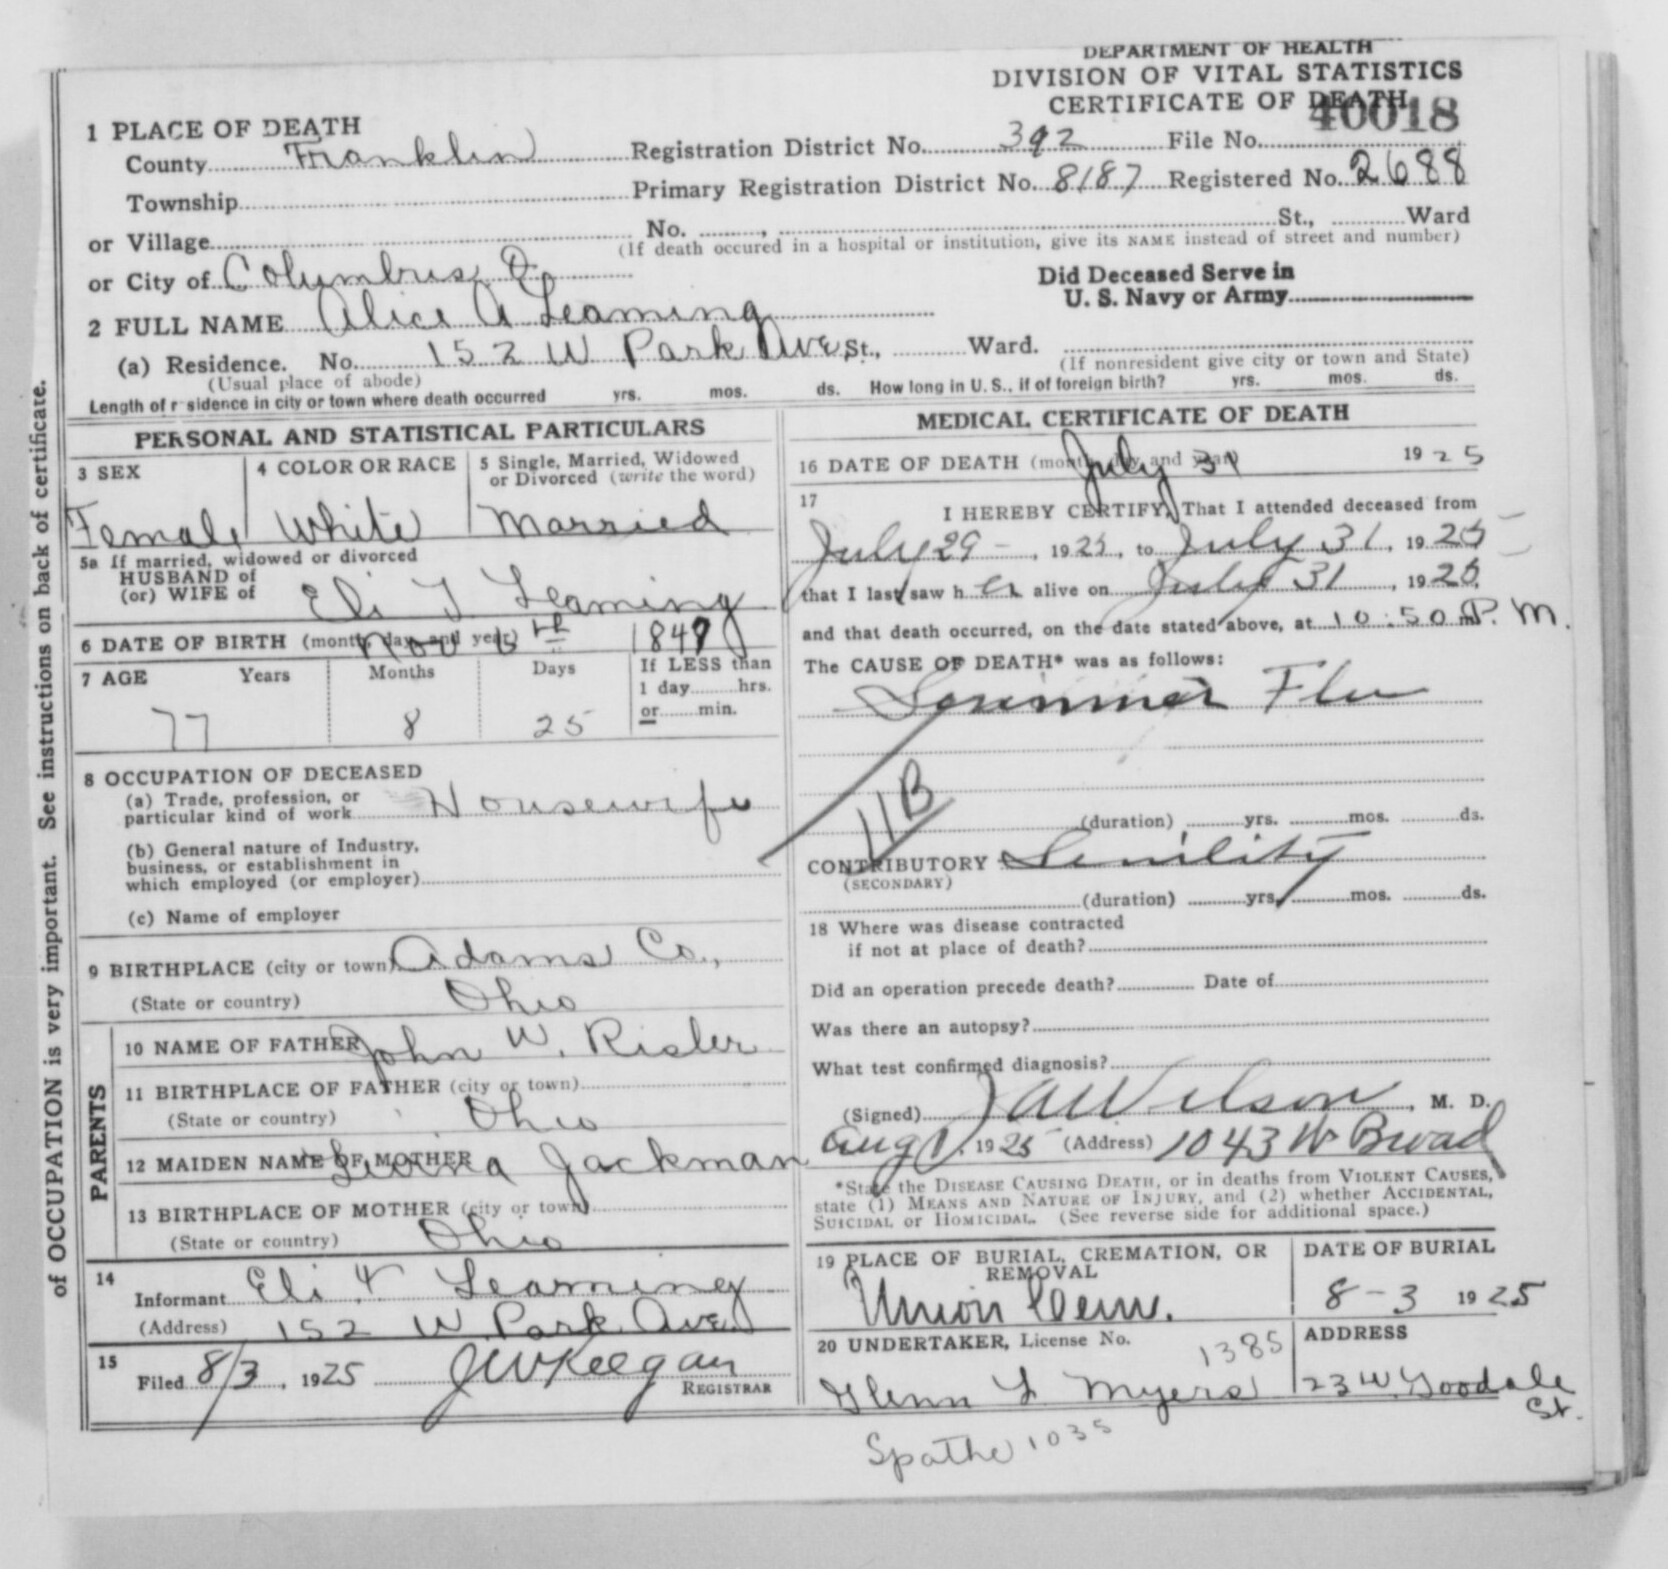 DEPARTMENT OF HEALTH
DIVISION OF VITAL STATISTICS
CERTIFICATE OF DEATH
40018
1 PLACE OF DEATH
County Franklin Registration District No. 392 File No.
Township Primary Registration District No. 8187 Registered No. 2688
or Village No. , St., Ward
(If death occured in a hospital or institution, give its NAME instead of street and number)
or City of Columbus O
Did Deceased Serve in
U. S. Navy or Army
2 FULL NAME Alice A Leaming
(a) Residence. No. 152 W Park Ave, St., Ward.
(Usual place of abode) (If nonresident give city or town and State)
Length of r sidence in city or town where death occurred yrs. mos. ds. How long in U. S., if of foreign birth? yrs. mos. ds.
PERSONAL AND STATISTICAL PARTICULARS
3 SEX
Female
4 COLOR OR RACE
White
5 Single, Married, Widowed
or Divorced (write the word)
Married
5a If married, widowed or divorced
HUSBAND of
(or) WIFE of Eli T Leaming
6 DATE OF BIRTH (month, day, and year) Nov 6th 1847
7 AGE Years Months Days If LESS than
1 day hrs.
or min.
77 8 25
8 OCCUPATION OF DECEASED
(a) Trade, profession, or
particular kind of work Housewife
(b) General nature of Industry,
business, or establishment in
which employed (or employer)
(c) Name of employer
9 BIRTHPLACE (city or town) Adams Co.,
(State or country) Ohio
PARENTS
10 NAME OF FATHER John W. Risler
11 BIRTHPLACE OF FATHER (city or town)
(State or country) Ohio
12 MAIDEN NAME OF MOTHER Jackman
13 BIRTHPLACE OF MOTHER (city or town)
(State or country) Ohio
14
Informant Eli T Leaming
(Address) 152 W Park Ave.
15
Filed 8/3, 1925 J W Keegan
REGISTRAR
MEDICAL CERTIFICATE OF DEATH
16 DATE OF DEATH (month, day, and year) July 31 1925
17
I HEREBY CERTIFY, That I attended deceased from
July 29 - , 1925, to July 31, 1925
that I last saw h er alive on July 31, 1925,
and that death occurred, on the date stated above, at 10:50 P. M.
The CAUSE OF DEATH* was as follows:
Summer Flu
11B
(duration) yrs. mos. ds.
CONTRIBUTORY Senility
(SECONDARY)
(duration) yrs. mos. ds.
18 Where was disease contracted
if not at place of death?
Did an operation precede death? Date of
Was there an autopsy?
What test confirmed diagnosis?
(Signed) J A Wilson, M. D.
Aug 1, 1925 (Address) 1043 W Broad
*State the DISEASE CAUSING DEATH, or in deaths from VIOLENT CAUSES,
state (1) MEANS AND NATURE OF INJURY, and (2) whether ACCIDENTAL,
SUICIDAL or HOMICIDAL. (See reverse side for additional space.)
19 PLACE OF BURIAL, CREMATION, OR
REMOVAL
Union Cem.
DATE OF BURIAL
8-3 1925
20 UNDERTAKER, License No. 1385
Glenn L Myers
ADDRESS
23 W. Goodale
St.
Spathe 1035
of OCCUPATION is very important. See instructions on back of certificate.